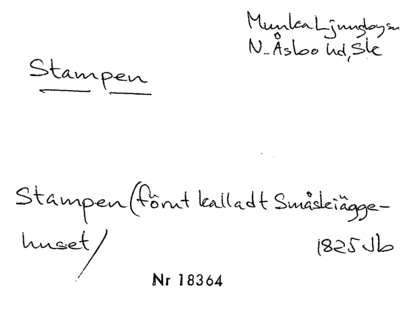 Munka Ljungby sn
N. Åsbo hd, Sk
Stampen
Stampen (förut kalladt Småskiägge-
huset/
1825 Jb
Nr 18364